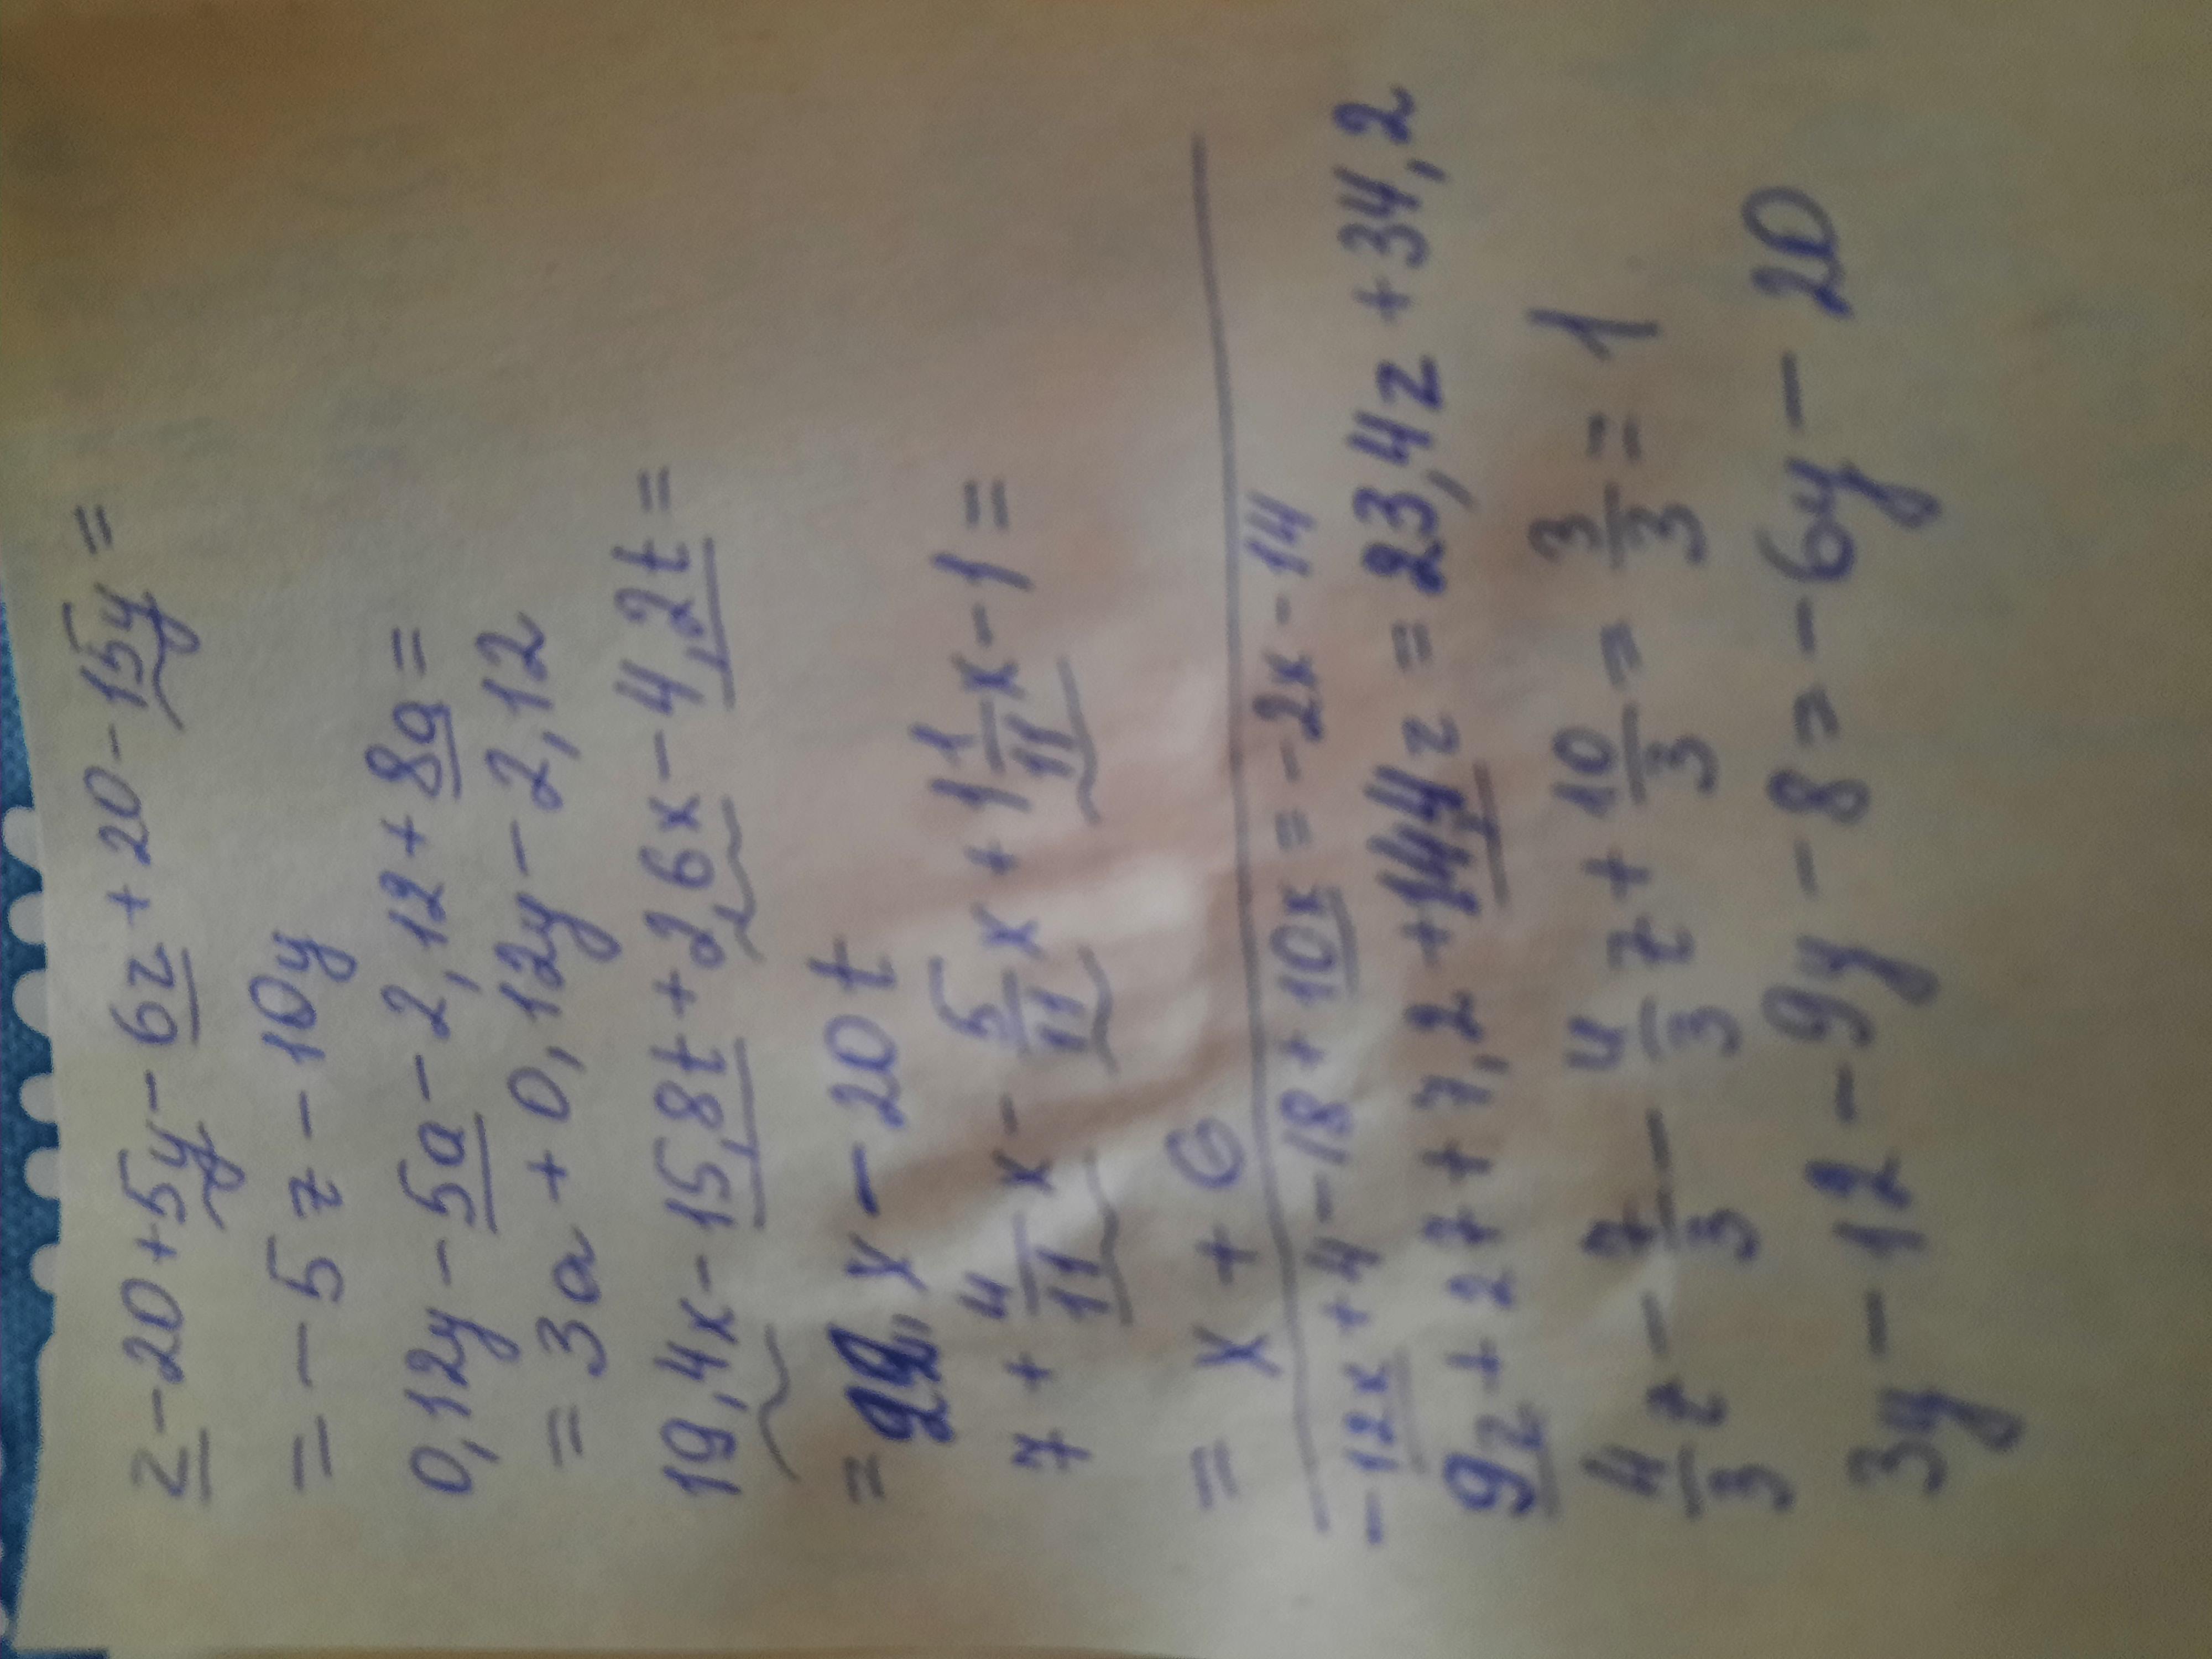 z - 20 + 5y - 6z + 20 - 15y =
= - 5z - 10y
0,12y - 5a - 2,12 + 8a =
= 3a + 0,12y - 2,12
19,4x - 15,8t + 2,6x - 4,2t =
= 22 x - 20t
7 + 4/11 x - 5/11 x + 1 1/11 x - 1 =
= x + 6
-12x + 4 - 18 + 10x = -2x - 14
9z + 27 + 7,2 + 14,4z = 23,4z + 34,2
4/3 z - 7/3 - 4/3 z + 10/3 = 3/3 = 1
3y - 12 - 9y - 8 = - 6y - 20